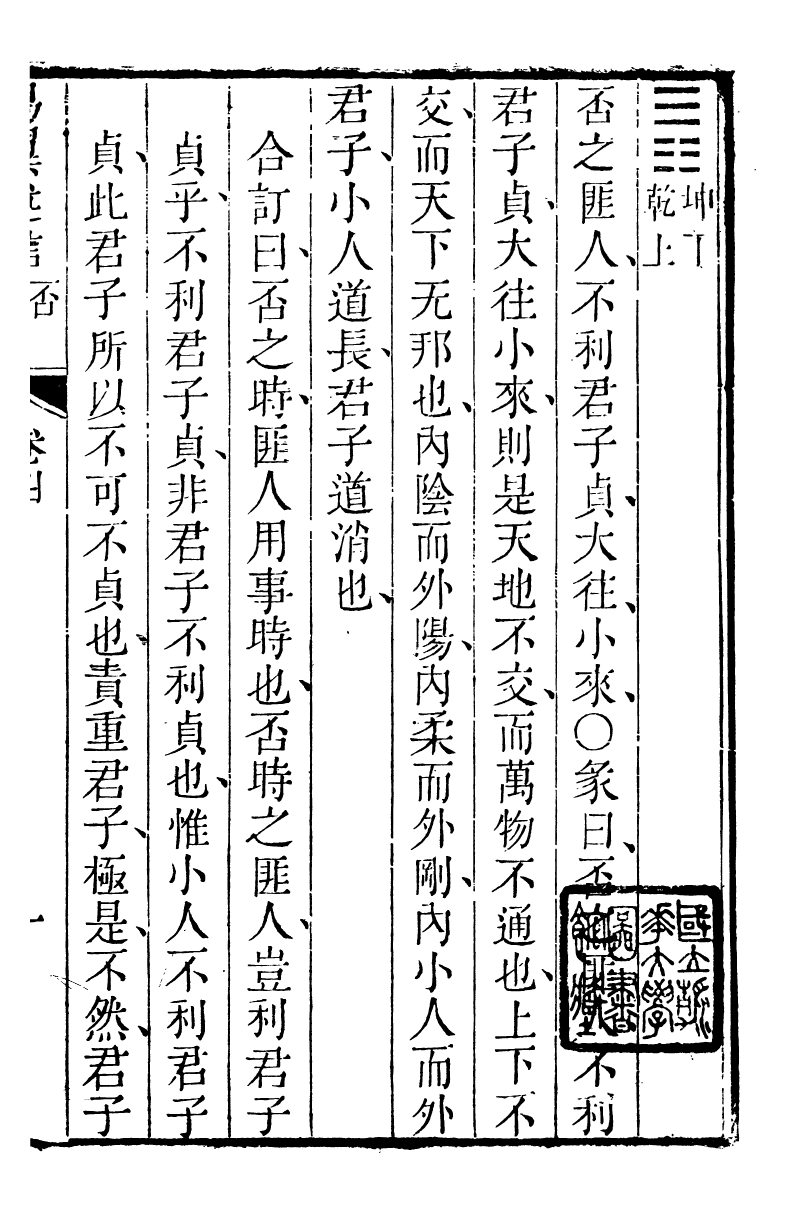 坤下
乾上
否之匪人不利君子貞大往小來○彖曰否之匪人不利
君子貞大往小來則是天地不交而萬物不通也上下不
交而天下无邦也內陰而外陽內柔而外剛內小人而外
君子小人道長君子道消也
合訂曰否之時匪人用事時也否時之匪人豈利君子
貞乎不利君子貞非君子不利貞也惟小人不利君子
貞此君子所以不可不貞也責重君子極是不然君子
否